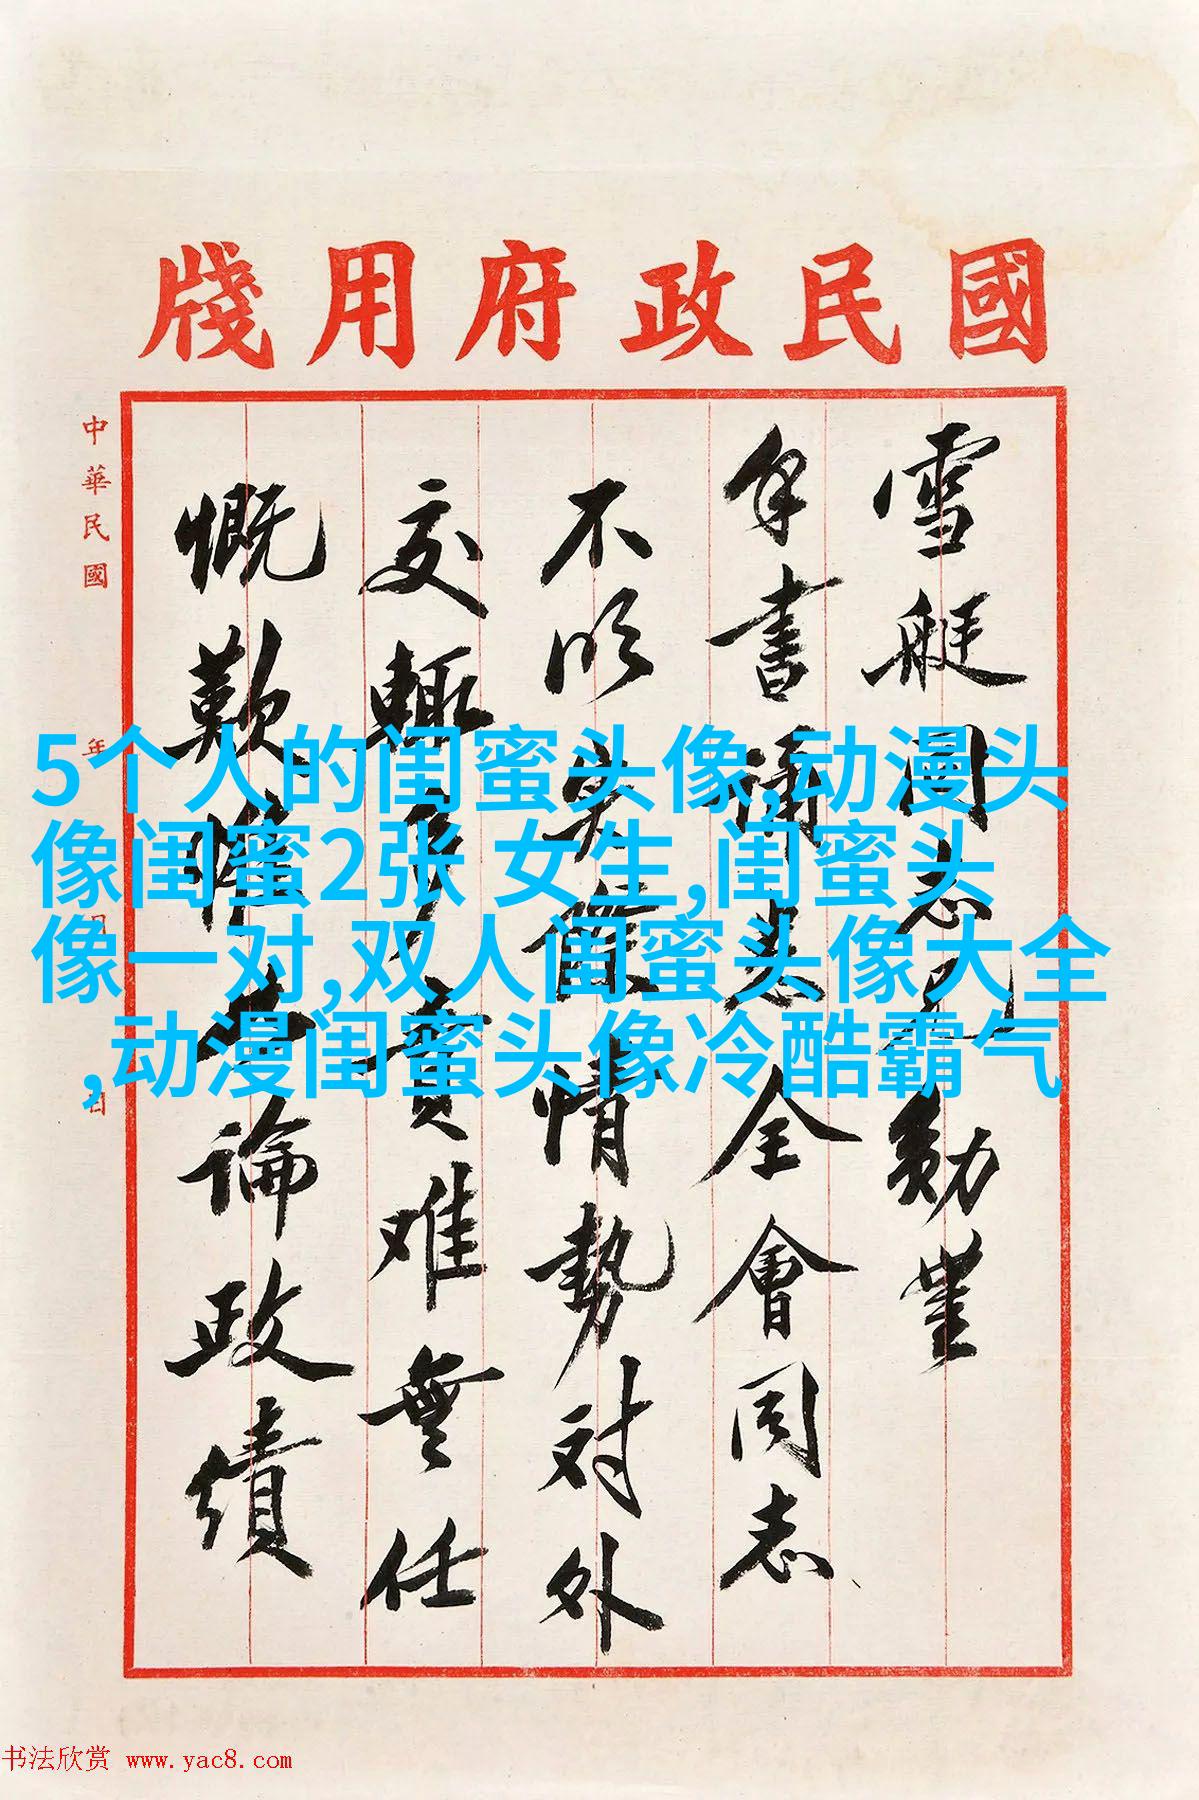 國民政府用牋
雪艇同志兄勛鑒
手書誦悉全會同志
不明黨儀情勢對外
交輒多責難無任
慨歎惟論政績
中華民國 年 月 日
5个人的闺蜜头像,动漫头
像闺蜜2张 女生,闺蜜头
像一对,双人闺蜜头像大全
,动漫闺蜜头像冷酷霸气
书法欣赏 www.yac8.com